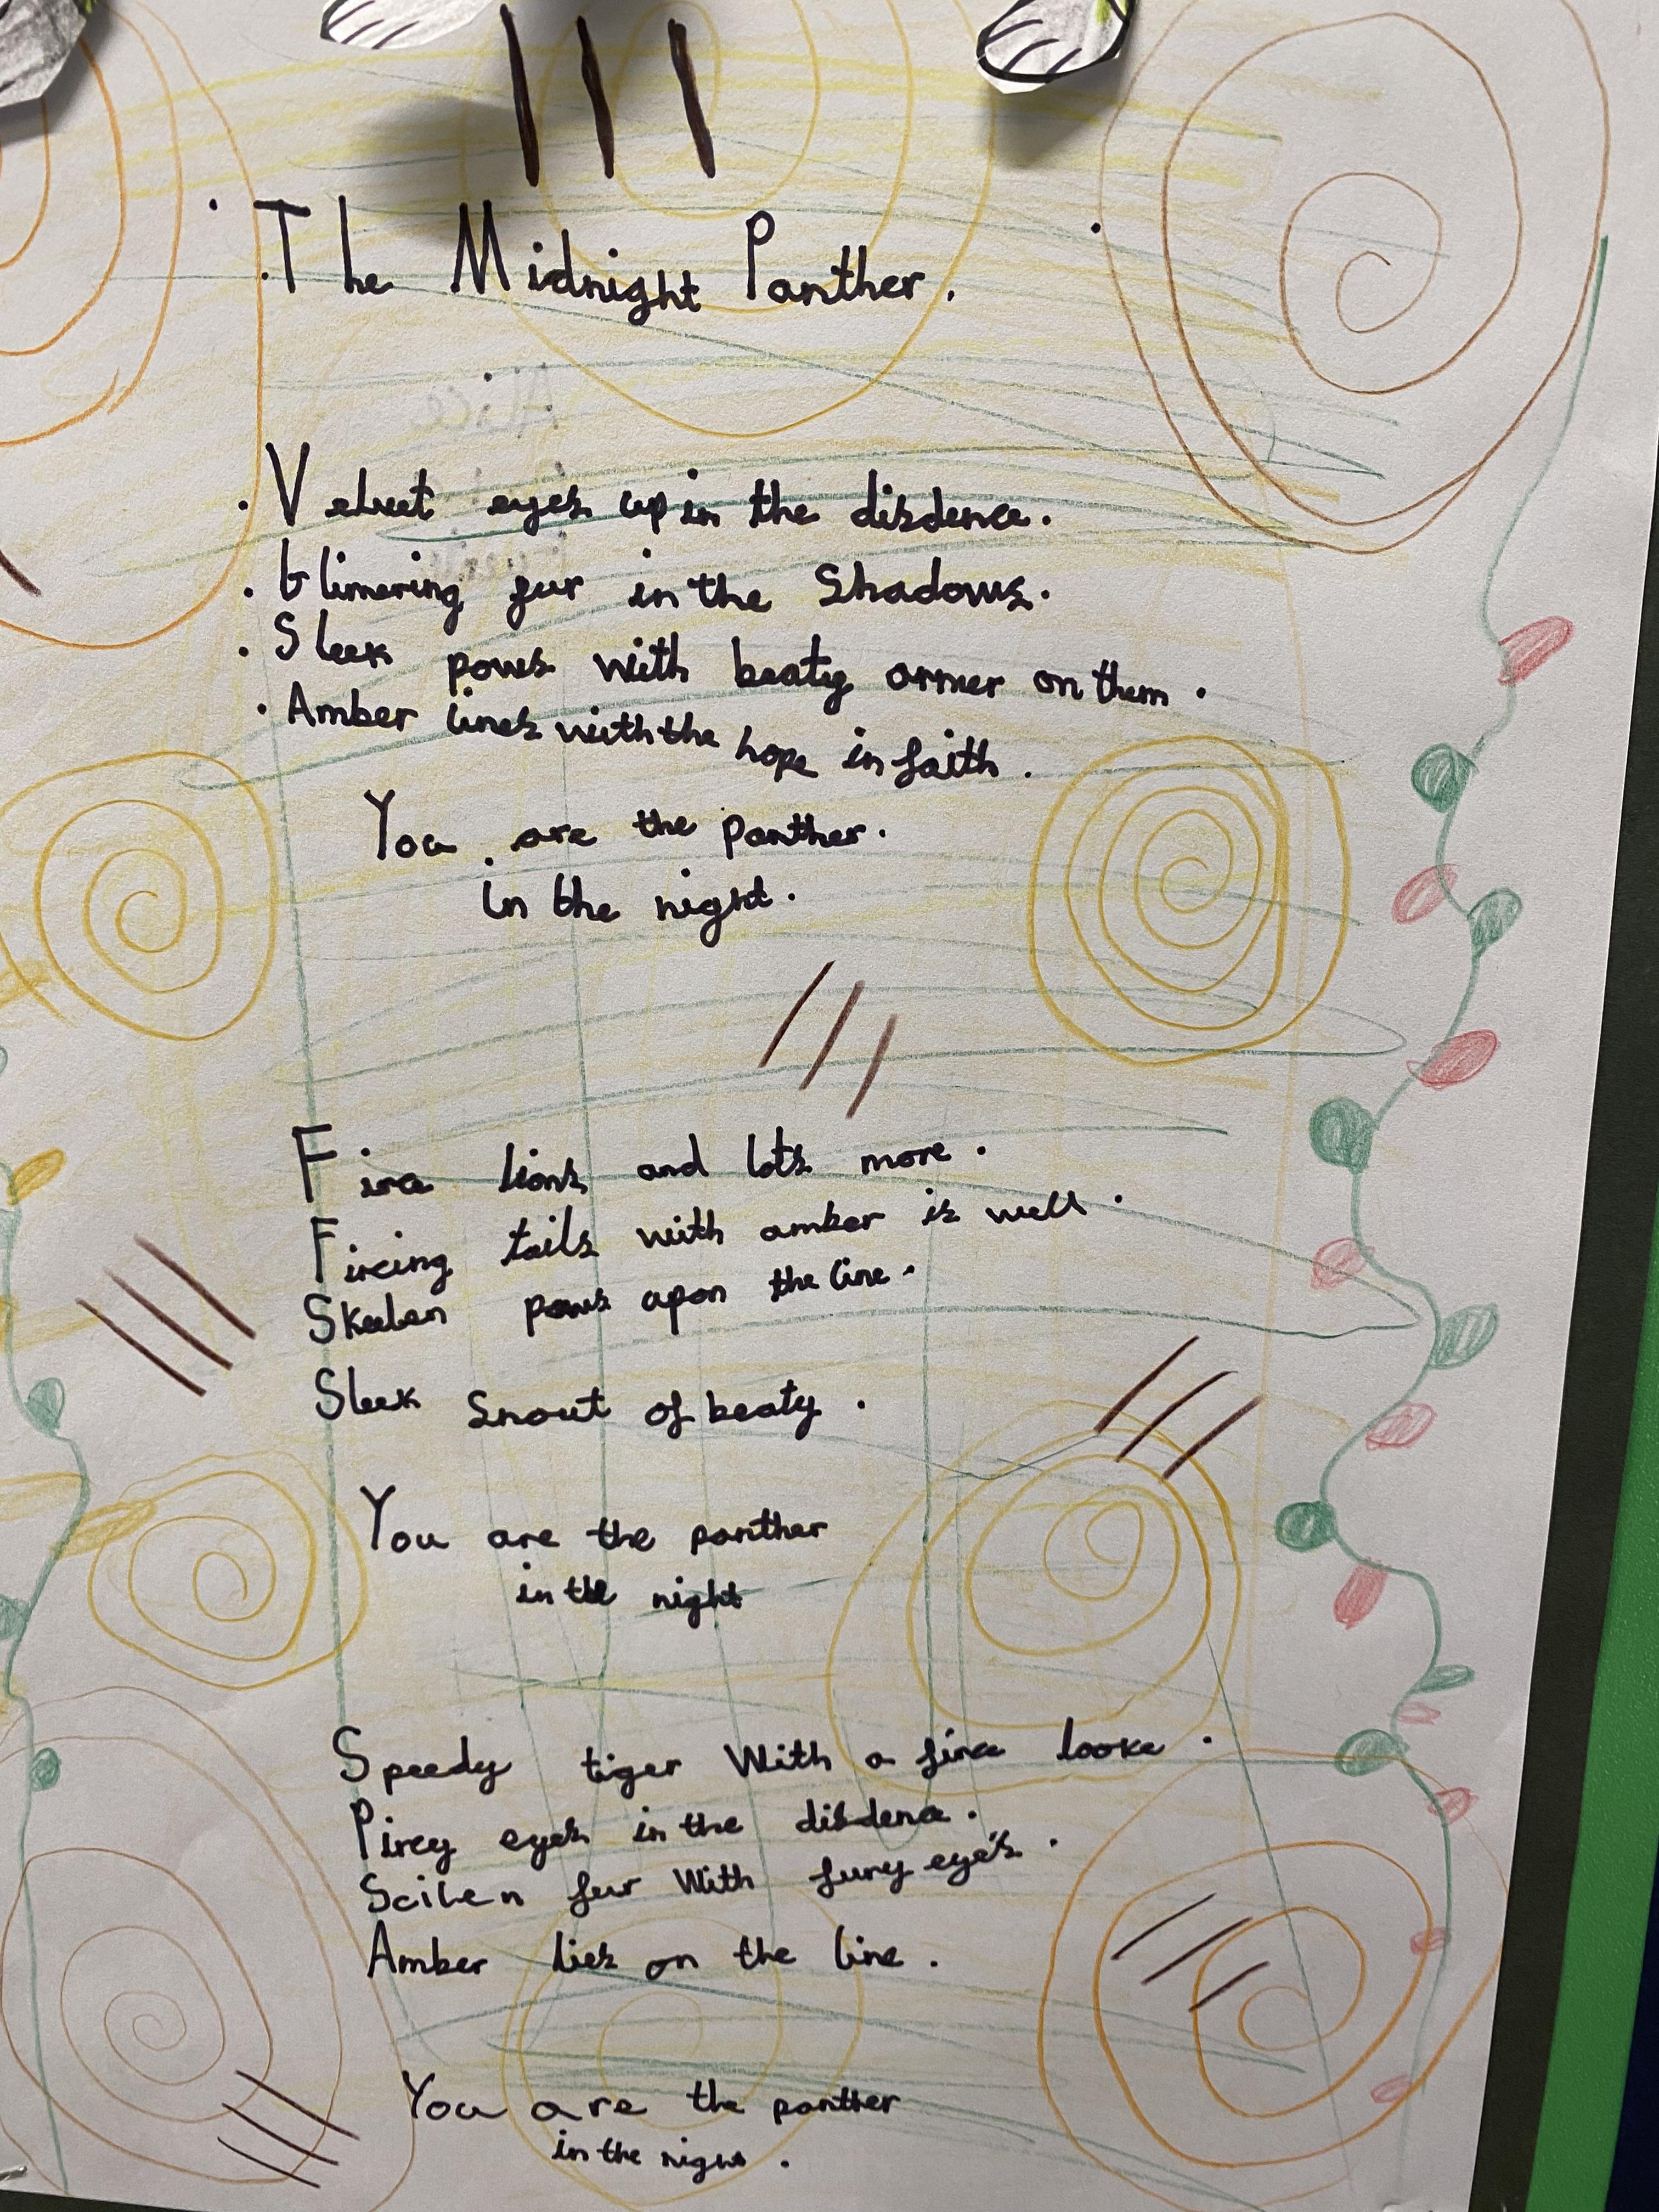 The Midnight Panther.
Alice
Velvet eyes up in the disdence.
Glimering fur in the Shadows.
Sleek paws with beaty armer on them.
Amber lines with the hope in faith.
You are the panther.
in the night.
Firce lions and lots more.
Fircing tails with amber is well.
Skeelen paws apon the line.
Sleek Snout of beaty.
You are the panther
in the night
Speedy tiger With a firce looke.
Pircy eyes in the disdence.
Scilen fur With fury eye's.
Amber lies on the line.
You are the panther
in the night.